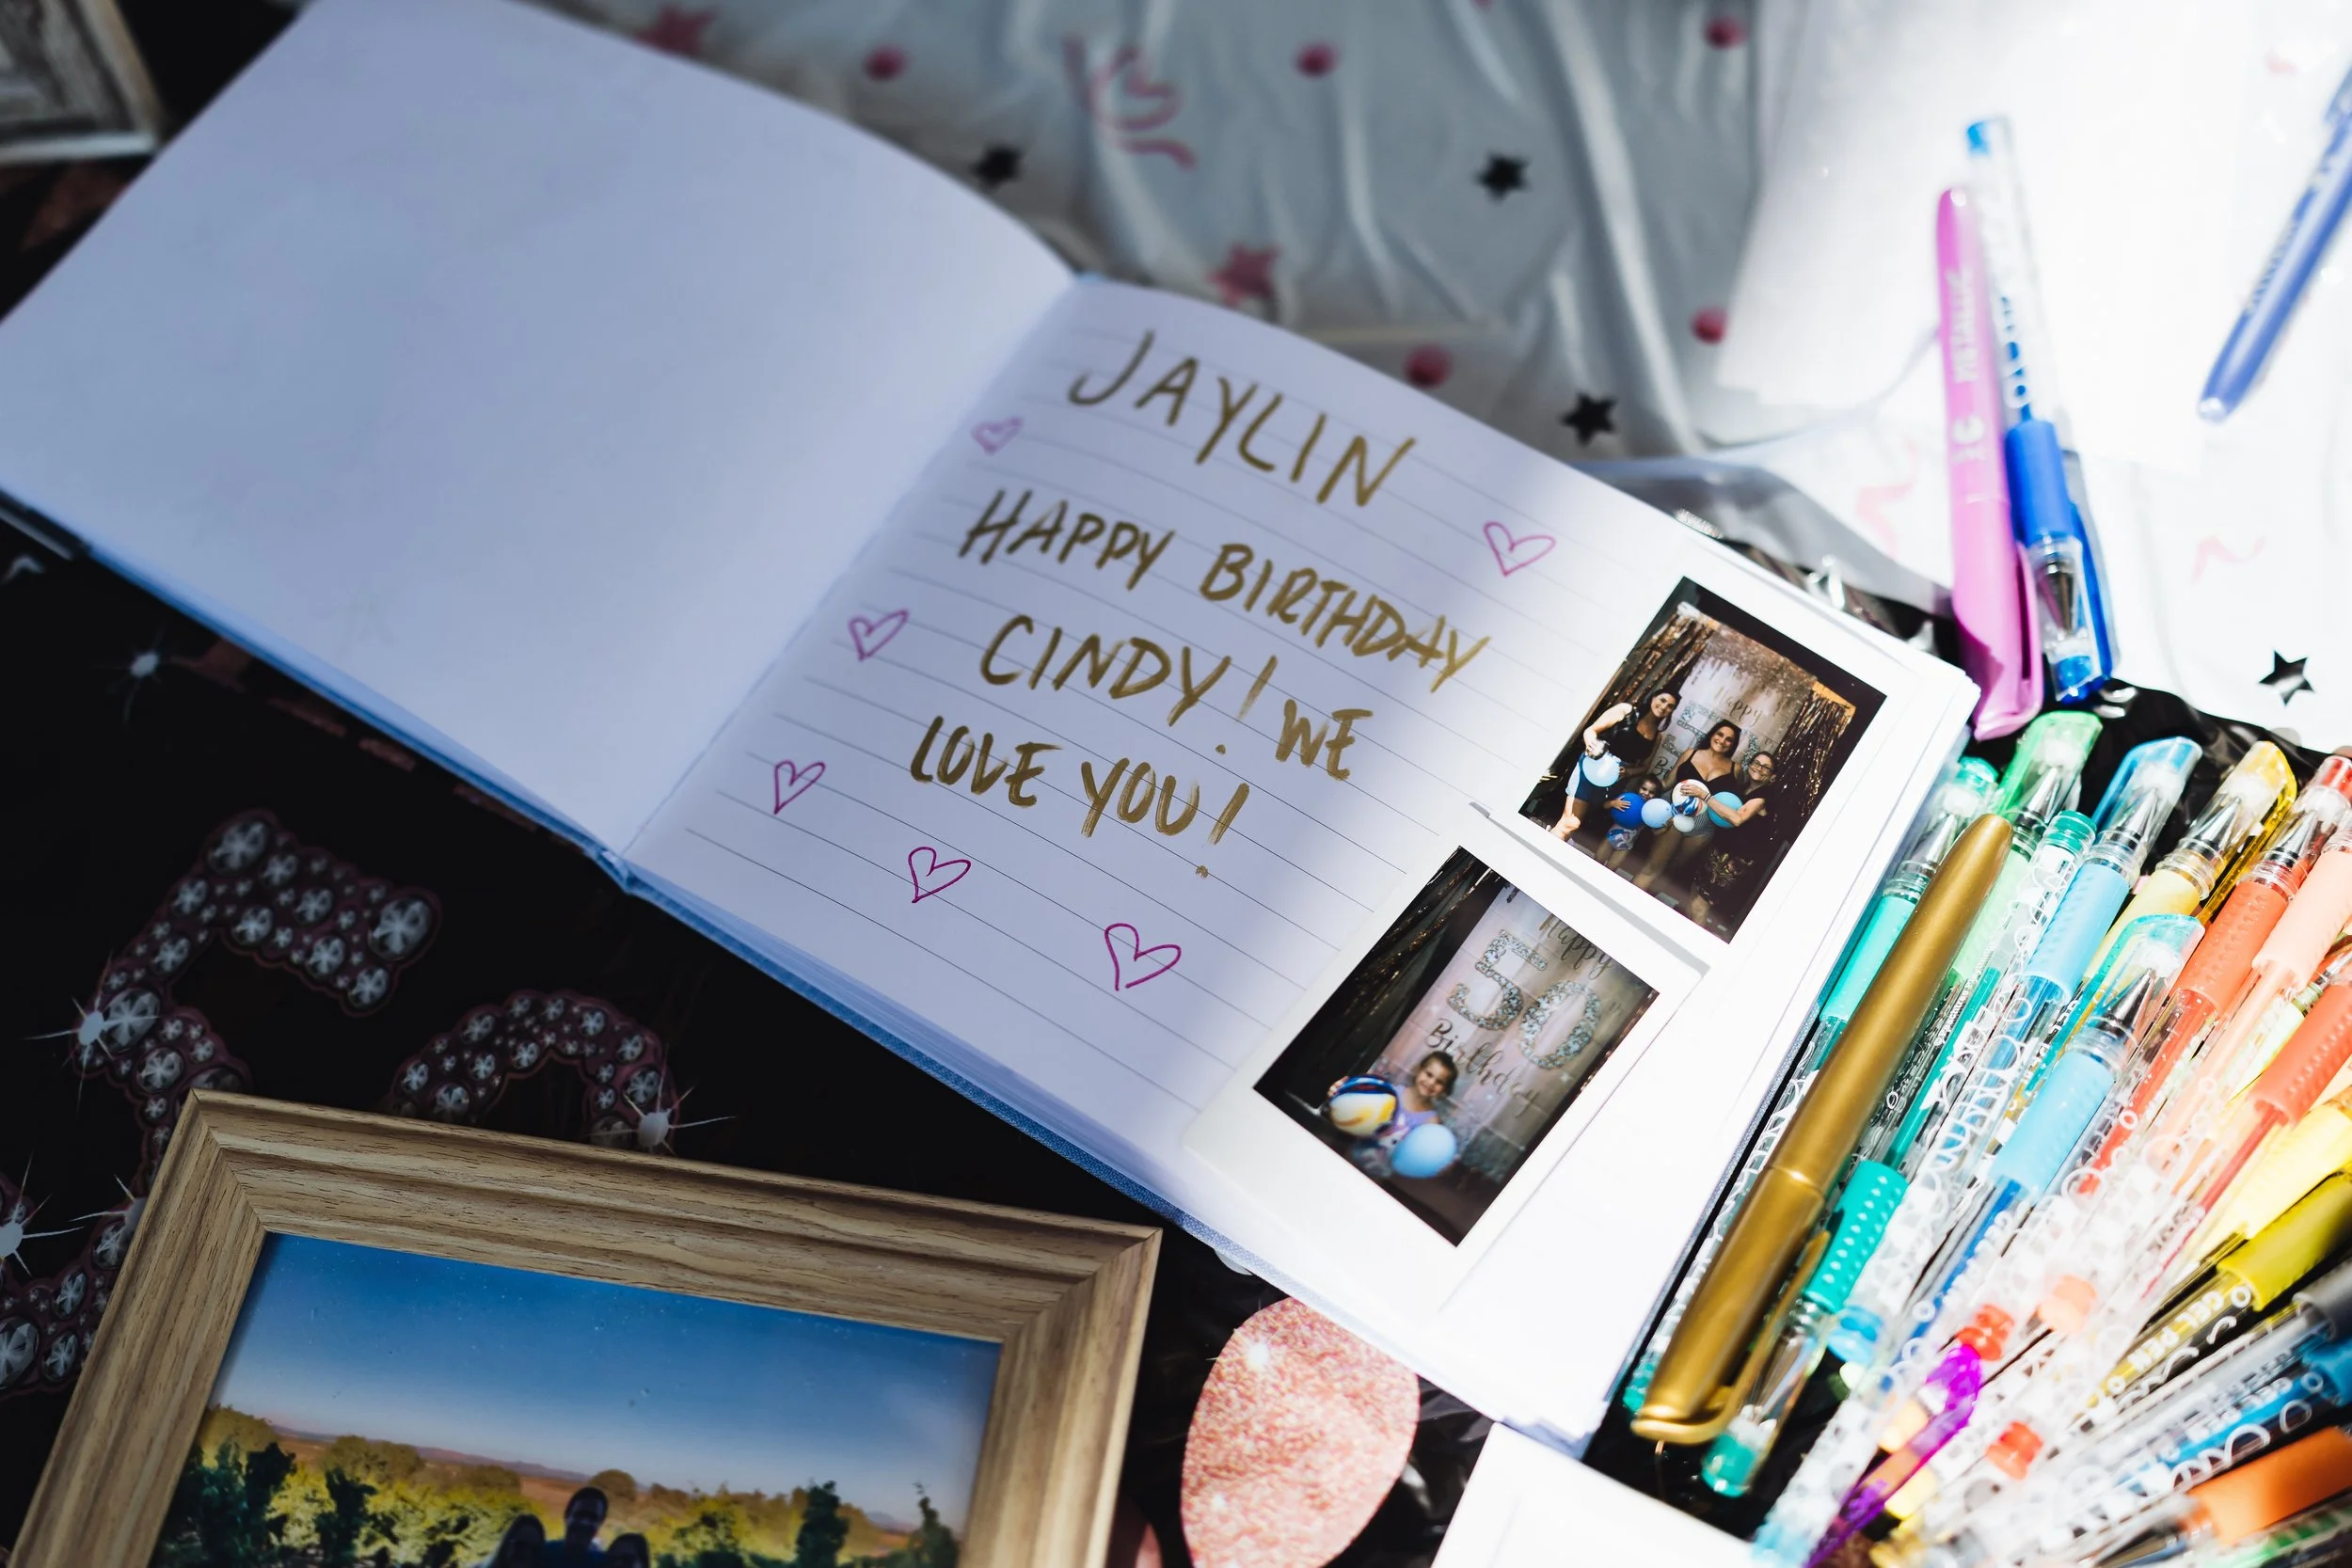 JAYLIN
HAPPY BIRTHDAY
CINDY! WE
LOVE YOU!
Happy
Happy
50
Birthday
GEL PEN